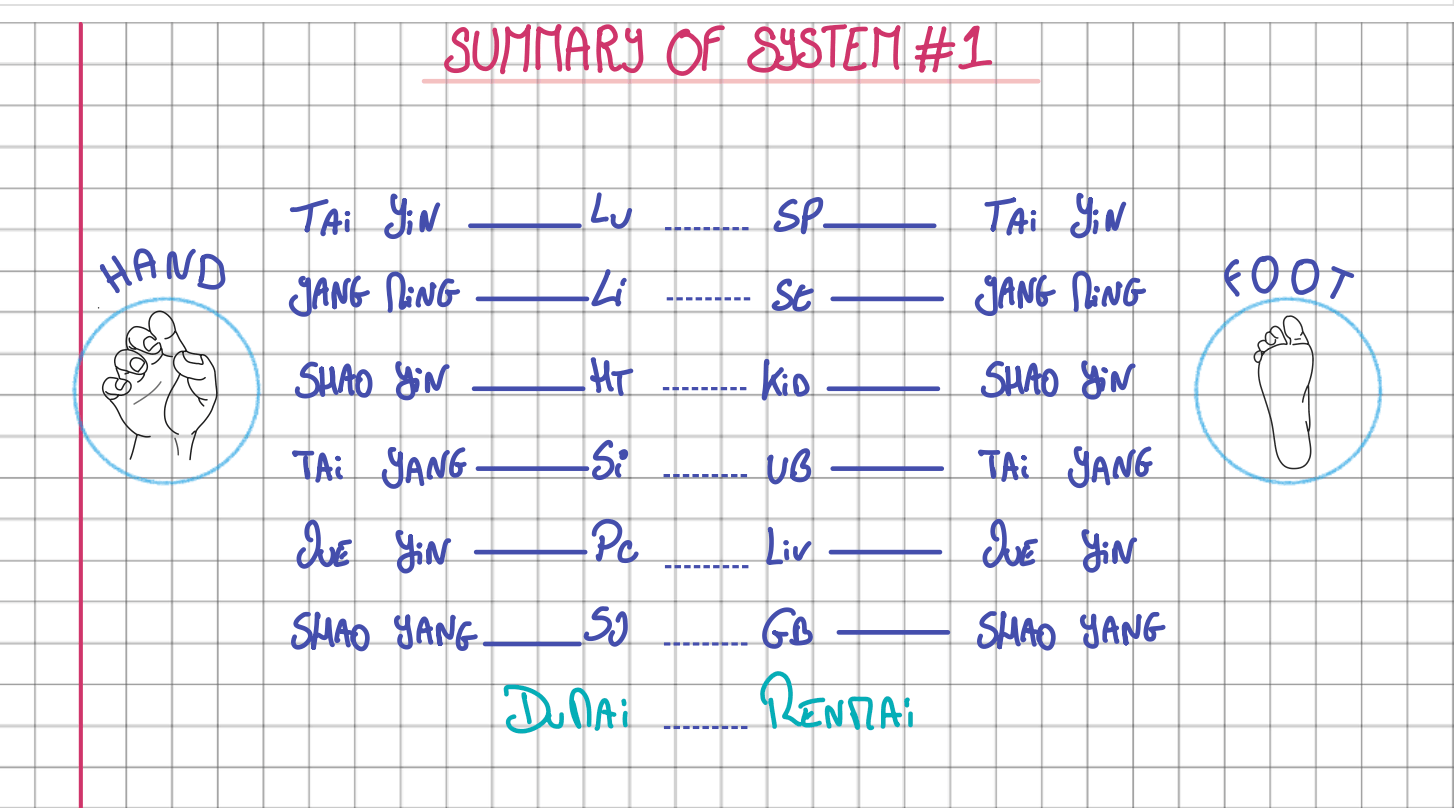 SUMMARY OF SYSTEM #1
TAi YiN Lu SP TAi YiN
HAND
FOOT
YANG MiNG Li St YANG MiNG
SHAO YiN HT KiD SHAO YiN
TAi YANG Si UB TAi YANG
JUE YiN Pc Liv JUE YiN
SHAO YANG SJ GB SHAO YANG
DuMAi RENMAi